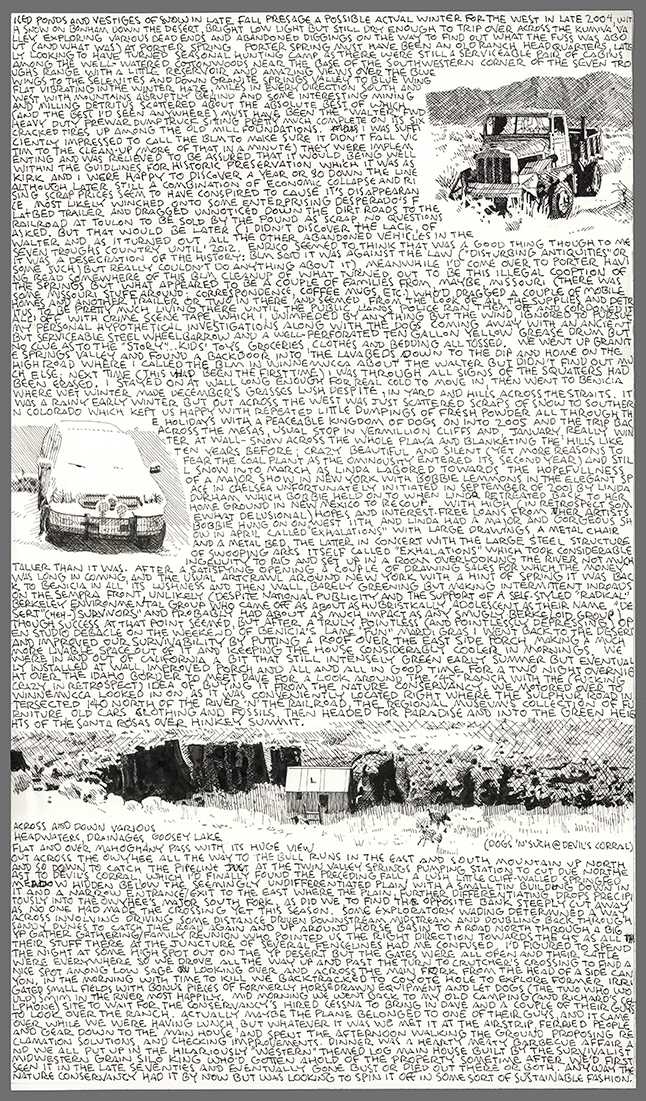 ICED PONDS AND VESTIGES OF SNOW IN LATE FALL PRESAGE A POSSIBLE ACTUAL WINTER FOR THE WEST IN LATE 2004, WIT
H SNOW ON BONHAM DOWN THE DESERT, BRIGHT LOW LIGHT BUT STILL DRY ENOUGH TO TRIP OVER ACROSS THE KUMIVA VA
LLEY EXPLORING VARIOUS DEAD ENDS AND ABANDONED DIGGINGS ON THE WAY TO FIND OUT WHAT THE FUSS WAS ABO
UT (AND WHAT WAS) AT PORTER SPRING. PORTER SPRING MUST HAVE BEEN AN OLD RANCH HEADQUARTERS, LATE
LY LOOKING TO HAVE TURNED SEASONAL HUNTING CAMP AS THERE WERE STILL A SERVICEABLE PAIR OF CABINS
AMONG THE WELL WATERED COTTONWOODS NEAR THE BASE OF THE SOUTHWESTERN CORNER OF THE SEVEN TRO
UGHS RANGE WITH A LITTLE RESERVOIR AND AMAZING VIEWS OVER THE BLUE
WINGS TO THE SELENITES AND DOWN GRANITE SPRINGS VALLEY TO BLUE WING
FLAT VIBRATING IN THE WINTER HAZE, MILES IN EVERY DIRECTION SOUTH AND
WEST WITH MOUNTAINS ABRUPTLY BEHIND AND SOME INTERESTING MINING
AND MILLING DETRITUS SCATTERED ABOUT THE ABSOLUTE BEST OF WHICH
(AND THE BEST I'D SEEN ANYWHERE) MUST HAVE BEEN THE WALTER FWD
HEAVY DUTY PREWAR DUMP TRUCK SITTING PRETTY MUCH COMPLETE ON ITS BIG
CRACKED TIRES UP AMONG THE OLD MILL FOUNDATIONS. I WAS SUFFI
CIENTLY IMPRESSED TO CALL THE BLM TO MAKE SURE IT DIDN'T FALL VIC
TIM TO THE CLEAN UP (MORE OF THAT IN A MINUTE) THEY WERE IMPLEM
ENTING AND WAS RELIEVED TO BE ASSURED THAT IT WOULD, BEING WELL
WITHIN THE GUIDLINES FOR HISTORIC PRESERVATION, WHICH IT WAS AS
KIRK AND I WERE HAPPY TO DISCOVER A YEAR OR SO DOWN THE LINE
ALTHOUGH LATER STILL A COMBINATION OF ECONOMIC COLLAPSE AND RI
SING SCRAP PRICES SEEM TO HAVE CONSPIRED TO CAUSE IT'S DISAPPEARAN
CE, MOST LIKELY WINCHED ONTO SOME ENTERPRISING DESPERADO'S F
LATBED TRAILER AND DRAGGED UNNOTICED DOWN THE DIRT ROADS TO THE
RAILROAD AT TOULON TO BE SOLD BY THE POUND AS SCRAP NO QUESTIONS
ASKED. BUT THAT WOULD BE LATER (I DIDN'T DISCOVER THE LACK OF
WALTER AND, AS IT TURNED OUT, ALL THE OTHER ABANDONED VEHICLES IN THE
SEVEN TROUGHS COUNTRY UNTIL 2012. ENRICO SEEMED TO THINK THAT WAS A GOOD THING THOUGH TO ME
IT WAS DESECRATION OF THE HISTORY; BLM SAID IT WAS AGAINST THE LAW ("DISTURBING ANTIQUITIES" OR
SOME SUCH) BUT REALLY COULDN'T DO ANYTHING ABOUT IT) MEANWHILE I'D COME OVER TO PORTER HAVI
NG READ SOMEWHERE OF THIS BLM CLEANUP OF WHAT TURNED OUT TO BE THIS ILLEGAL COOPTION OF
THE SPRINGS BY WHAT APPEARED TO BE A COUPLE OF FAMILIES FROM, MAYBE, MISSOURI (THERE WAS
SOME MISSOURI STUFF AROUND: CORRESPONDENCE, COFFEE MUGS, ETC) WHO'D DRAGGED A COUPLE OF MOBILE
HOMES AND ANOTHER TRAILER OR TWO IN THERE AND SEEMED, FROM THE LOOK OF ALL THE SUPPLIES AND DETR
ITUS, TO BE PRETTY MUCH LIVING THERE UNTIL THE PUBLIC LANDS POLICE RAN THEM OFF AND CORDONED IT
ALL OFF WITH CRIME SCENE TAPE WHICH I, UNIMPEDED BY ANYTHING BUT THE WIND IGNORED TO PURSUE
MY PERSONAL HYPOTHETICAL INVESTIGATIONS ALONG WITH THE DOGS COMING AWAY WITH AN ANCIENT
BUT SERVICEABLE STEEL WHEELBARROW AND A WELL-PERFORATED TEN GALLON YELLOW GREASE DRUM BUT
NO CLUE AS TO THE "STORY", KIDS' TOYS, GROCERIES, CLOTHES AND BEDDING ALL TOSSED. WE WENT UP GRANIT
E SPRINGS VALLEY AND FOUND A BACKDOOR INTO THE LAVABEDS, DOWN TO THE DIP AND HOME ON THE
HIGH ROAD WHERE I CALLED THE BLM IN WINNEMUCCA ABOUT THE WALTER BUT DIDN'T FIND OUT MU
CH ELSE; NEXT TIME (THIS HAD BEEN THE FIRST TIME) I WAS THROUGH ALL SIGNS OF THE SQUATTERS HAD
BEEN ERASED. I STAYED ON AT WALL LONG ENOUGH FOR REAL COLD TO MOVE IN, THEN WENT TO BENICIA
WHERE WET WINTER MADE DECEMBER'S GRASSES LUSH DESPITE, IN YARD AND HILLS ACROSS THE STRAITS. IT
WAS A RAINY EARLY WINTER BUT OUT ACROSS THE WEST WAS JUST SCATTERED SCRAPS OF SNOW TO SOUTHER
N COLORADO WHICH KEPT US HAPPY WITH REPEATED LITTLE DUMPINGS OF FRESH POWDER ALL THROUGH TH
E HOLIDAYS WITH A PEACEABLE KINGDOM OF DOGS ON INTO 2005 AND THE TRIP BAC
ACROSS THE MESAS, USUAL STOP IN VERMILLION CLIFFS AND JANUARY REALLY WIN
TER, AT WALL - SNOW ACROSS THE WHOLE PLAYA AND BLANKETING THE HILLS LIKE
TEN YEARS BEFORE; CRAZY BEAUTIFUL AND SILENT (YET MORE REASONS TO
FEAR THE COAL PLANT AS THE OMINOUSITY ENTERED ITS SECOND YEAR) AND STILL
SNOW INTO MARCH AS LINDA LABORED TOWARDS THE HOPEFULLNESS
OF A MAJOR SHOW IN NEW YORK WITH BOBBIE LEMMONS IN THE ELEGANT SP
ACE IN CHELSEA UNFORTUNATELY INITIATED IN SEPTEMBER OF 2001 BY LINDA
DURHAM, WHICH BOBBIE HELD ON TO WHEN LINDA RETREATED BACK TO HER
HOME GROUND IN NEW MEXICO TO RECOUP. WITH HIGH, IN RETROSPECT SOM
EWHAT DELUSIONAL, HOPES AND INTEREST-FREE LOANS FROM HER ARTISTS
BOBBIE HUNG ON ON WEST 11TH, AND LINDA HAD A MAJOR AND GORGEOUS SH
OW IN APRIL, CALLED "EXHALATIONS" WITH LARGE DRAWINGS, A METAL CHAIR
AND A METAL BED, THE LATTER IN CONCERT WITH THE LARGE STEEL STRUCTURE
OF SWOOPING ARKS ITSELF CALLED "EXHALATIONS" WHICH TOOK CONSIDERABLE
INGENUITY TO RIG AND SET UP IN A ROOM OVERLOOKING THE RIVER NOT MUCH
TALLER THAN IT WAS. AFTER A SATISFYING OPENING, A COUPLE OF DRAWING SALES FOR WHICH THE MONEY
WAS LONG IN COMING AND THE USUAL ARTCRAWL AROUND NEW YORK WITH A HINT OF SPRING IT WAS BAC
K TO BENICIA IN ALL ITS LUSHNESS AND THEN WALL, BARELY GREENING BUT MAKING INTERMITTENT INROADS
ON THE SEMPRA FRONT, UNLIKELY (DESPITE NATIONAL PUBLICITY AND THE SUPPORT OF A SELF-STYLED "RADICAL"
BERKELEY ENVIRONMENTAL GROUP WHO CAME OFF AS ABOUT AS HUBRISTICALLY ADOLESCENT AS THEIR NAME, "DE
SERT (HEH-) SURVIVORS" AND PROBABLY HAD ABOUT AS MUCH IMPACT AS ANY SMUGLY BERKELOID GROUP
THOUGH SUCCESS AT THAT POINT SEEMED. BUT AFTER A TRULY POINTLESS (AND POINTLESSLY DEPRESSING) OP
EN STUDIO DEBACLE ON THE WEEKEND OF BENICIA'S LAME "FUN" MARDI GRAS I WENT BACK TO THE DESERT
AND IMPROVED OUR SURVIVABILITY BY PUTTING A ROOF OVER THE EAST SIDE PORCH, MAKING A MUCH
MORE LIVABLE SPACE OUT OF IT AND KEEPING THE HOUSE CONSIDERABLY COOLER IN MORNINGS. WE
WERE IN AND OUT OF CALIFORNIA A BIT THAT STILL INTENSELY GREEN EARLY SUMMER BUT EVENTUAL
LY INSTALLED AT WALL, IMPROVED PORCH AND ALL AND ALL IN GOOD TIME FOR A TWO NIGHT OVERNIG
HT OVER THE IDAHO BORDER TO MEET DAVE FOR A LOOK AROUND THE "45" RANCH WITH THE (FUCKING
CRAZY IN RETROSPECT) IDEA OF BUYING IT FROM THE NATURE CONSERVANCY. WE MOTORED OVER TO
WINNEMUCCA, LOOKED IN ON, AS IT WAS CONVENIENTLY LOCATED RIGHT WHERE THE SULPHUR ROAD IN
TERSECTED 140 NORTH OF THE RIVER 'N THE RAILROAD, THE REGIONAL MUSEUM'S COLLECTION OF FU
RNITURE, OLD CARS, CLOTHING AND FOSSILS, THEN HEADED FOR PARADISE AND INTO THE GREEN HEIG
HTS OF THE SANTA ROSAS OVER HINKEY SUMMIT.
ACROSS AND DOWN VARIOUS
HEADWATERS, DRAINAGES, GOOSEY LAKE
FLAT AND OVER MAHOGHANY PASS WITH ITS HUGE VIEW
(DOGS 'N' SUCH @ DEVIL'S CORRAL)
OUT ACROSS THE OWYHEE ALL THE WAY TO THE BULL RUNS IN THE EAST AND SOUTH MOUNTAIN UP NORTH
AND SO DOWN TO CATCH THE PIPELINE JUST AT THE TWIN VALLEY SPRINGS PUMPING STATION TO CUT DUE NORTH
EAST TO DEVIL'S CORRAL, WHICH I'D FINALLY FOUND THE PRECEDING FALL, A LUSH LITTLE CLIFF-WALLED SPRING AND
MEADOW HIDDEN BELOW THE SEEMINGLY UNDIFFERENTIATED PLAIN WITH A SMALL TIN BUILDING DOWN IN
IT AND A NARROW ENTRANCE/EXIT TO THE EAST WHERE THE PLAIN, FURTHER DIFFERENTIATING, DROPS PRECIPI
TOUSLY INTO THE OWYHEE'S MAJOR SOUTH FORK, AS DID WE TO FIND THE OPPOSITE BANK STEEPLY CUT AWAY
AS NO ONE HAD MADE THE CROSSING YET THIS SEASON. SOME EXPLORATORY WADING DETERMINED A WAY
ACROSS INVOLVING DRIVING SOME DISTANCE DOWN DOWNSTREAM, MIDSTREAM AND DOUBLING BACK THROUGH
SAND DUNES TO CATCH THE ROAD AGAIN AND UP AROUND HORSE BASIN TO A ROAD NORTH THROUGH A BIG
YP GATHER GATHERING/FAMILY REUNION WHO POINTED US THE RIGHT DIRECTION TOWARDS THE 45 AS ALL
THEIR STUFF THERE AT THE JUNCTURE OF SEVERAL FENCELINES HAD ME CONFUSED. I'D FIGURED TO SPEND
THE NIGHT AT SOME HIGH SPOT OUT ON THE YP DESERT BUT THE GATES WERE ALL OPEN AND THEIR CATTLE
WERE EVERYWHERE SO WE DROVE ALL THE WAY UP AND PAST THE TURN TO CRUTCHER'S CROSSING TO FIND A
NICE SPOT AMONG LOW SAGE LOOKING OVER AND ACROSS THE MAIN FORK FROM THE HEAD OF A SIDE CAN
YON, IN THE MORNING WITH TIME TO KILL WE BACKTRACKED TO COYOTE HOLE TO EXPLORE FORMER IRRI
GATED SMALL FIELDS WITH BONUS PIECES OF FORMERLY HORSEDRAWN EQUIPMENT AND LET DOGS (THE TWO WHO WO
ULD) SWIM IN THE RIVER MOST HAPPILY. MID MORNING WE WENT BACK TO MY OLD CAMPING (AND RICHARD'S CE
LLPHONE) SITE TO WAIT FOR THE CONSERVANCY'S HIRED CESSNA TO BRING IN DAVE AND A COUPLE OF THEIR GUYS
TO LOOK OVER THE RANCH. ACTUALLY MAYBE THE PLANE BELONGED TO ONE OF THEIR GUYS, AND IT CAME
OVER WHILE WE WERE HAVING LUNCH, BUT WHATEVER IT WAS WE MET IT AT THE AIRSTRIP, FERRIED PEOPLE
AND GEAR DOWN TO THE MAIN HOUSE AND SPENT THE AFTERNOON WALKING THE GROUND PROPOSING RE
CLAMATION SOLUTIONS AND CHECKING IMPROVEMENTS. DINNER WAS A HEARTY MEATY BARBECUE AFFAIR A
ND WE ALL PUT UP IN THE HILARIOUSLY "WESTERN" THEMED LOG MAIN HOUSE BUILT BY THE SURVIVALIST
MIDWESTERN GRAIN SILO KING WHO'D GOTTEN AHOLD OF THE PROPERTY SOMETIME AFTER WE'D FIRST
SEEN IT IN THE LATE SEVENTIES AND EVENTUALLY GONE BUST OR DIED OUT THERE OR BOTH. ANYWAY THE
NATURE CONSERVANCY HAD IT BY NOW BUT WAS LOOKING TO SPIN IT OFF IN SOME SORT OF SUSTAINABLE FASHION.